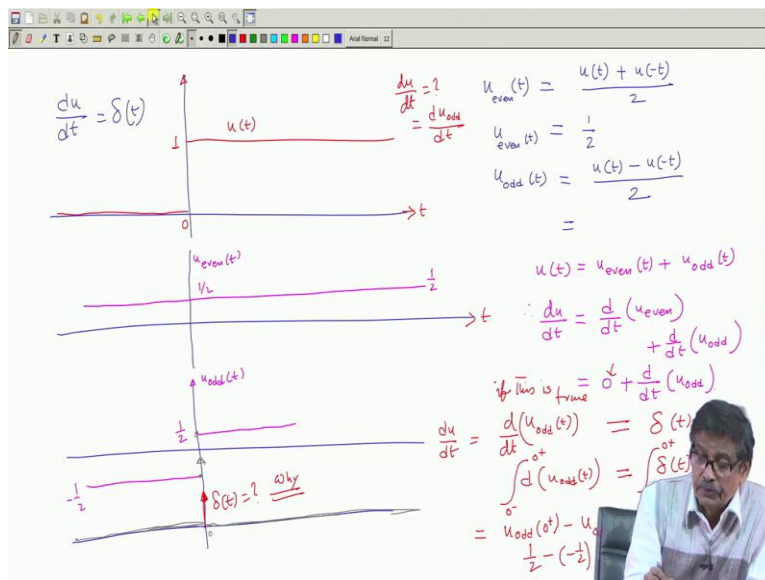 Arial Normal 12
du/dt = δ(t)
u(t)
1
0
t
du/dt = ?
= du_odd/dt
u_even(t)
1/2
1/2
t
u_odd(t)
1/2
-1/2
δ(t) = ? why
0
u_even(t) = (u(t) + u(-t))/2
u_even(t) = 1/2
u_odd(t) = (u(t) - u(-t))/2
=
u(t) = u_even(t) + u_odd(t)
∴ du/dt = d/dt (u_even)
+ d/dt (u_odd)
if This is true = 0 + d/dt (u_odd)
du/dt = d/dt (u_odd(t)) = δ(t)
∫_{0-}^{0+} d(u_odd(t)) = ∫^{0+} δ(t)
= u_odd(0+) - u
1/2 - (-1/2)